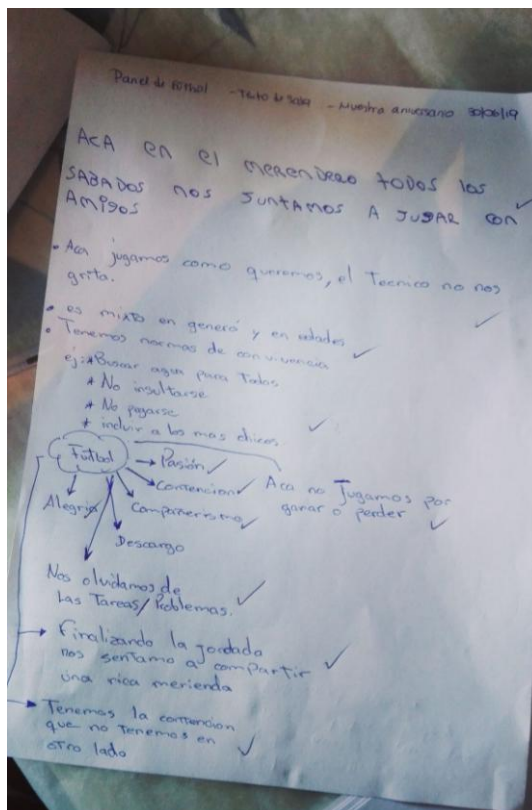 Panel de fútbol - Texto de sala - Muestra aniversario 30/06/19
ACA en el merendero todos los
SABADOS nos JUNTAMOS A JUGAR con
Amigos
• Aca jugamos como queremos, el Tecnico no nos
grita.
• es mixto en genero y en edades
• Tenemos normas de convivencia
ej: * Buscar agua para Todos
* No insultarse
* No pegarse
* incluir a los mas chicos
Futbol
→ Pasión
→ Contencion
Aca no Jugamos por
ganar o perder
Alegria
Compañerismo
Descargo
Nos olvidamos de
Las Tareas/Problemas.
→ Finalizando la jordada
nos sentamo a compartir
una rica merienda
→ Tenemos la contencion
que no tenemos en
otro lado